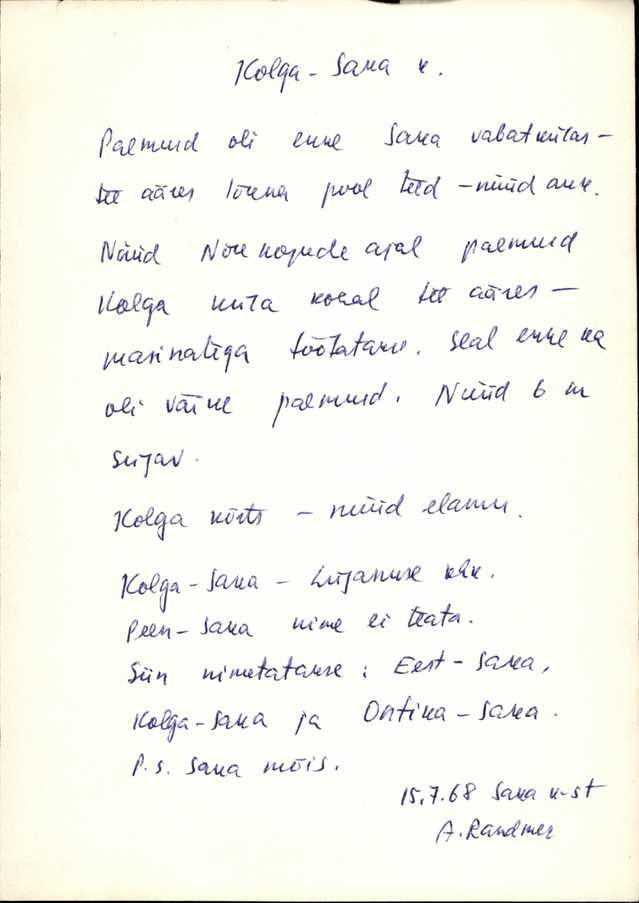 Kolga-Saka k.
Paemurd oli enne Saka vabatkülas-
tee ääres lõuna pool teed – nüüd auk.
Nüüd Nõukogude ajal paemurd
Kolga küla kohal tee ääres –
masinatega töötatakse. Seal enne ka
oli väike paemurd. Nüüd 6 m
sügav.
Kolga kõrts – nüüd elamu.
Kolga-Saka – Lüganuse khk.
Peen-Saka nime ei teata.
Siin nimetatakse: Eest-Saka,
Kolga-Saka ja Ontika-Saka.
P.s. Saka mõis.
15.7.68 Saka k-st
A. Randmer